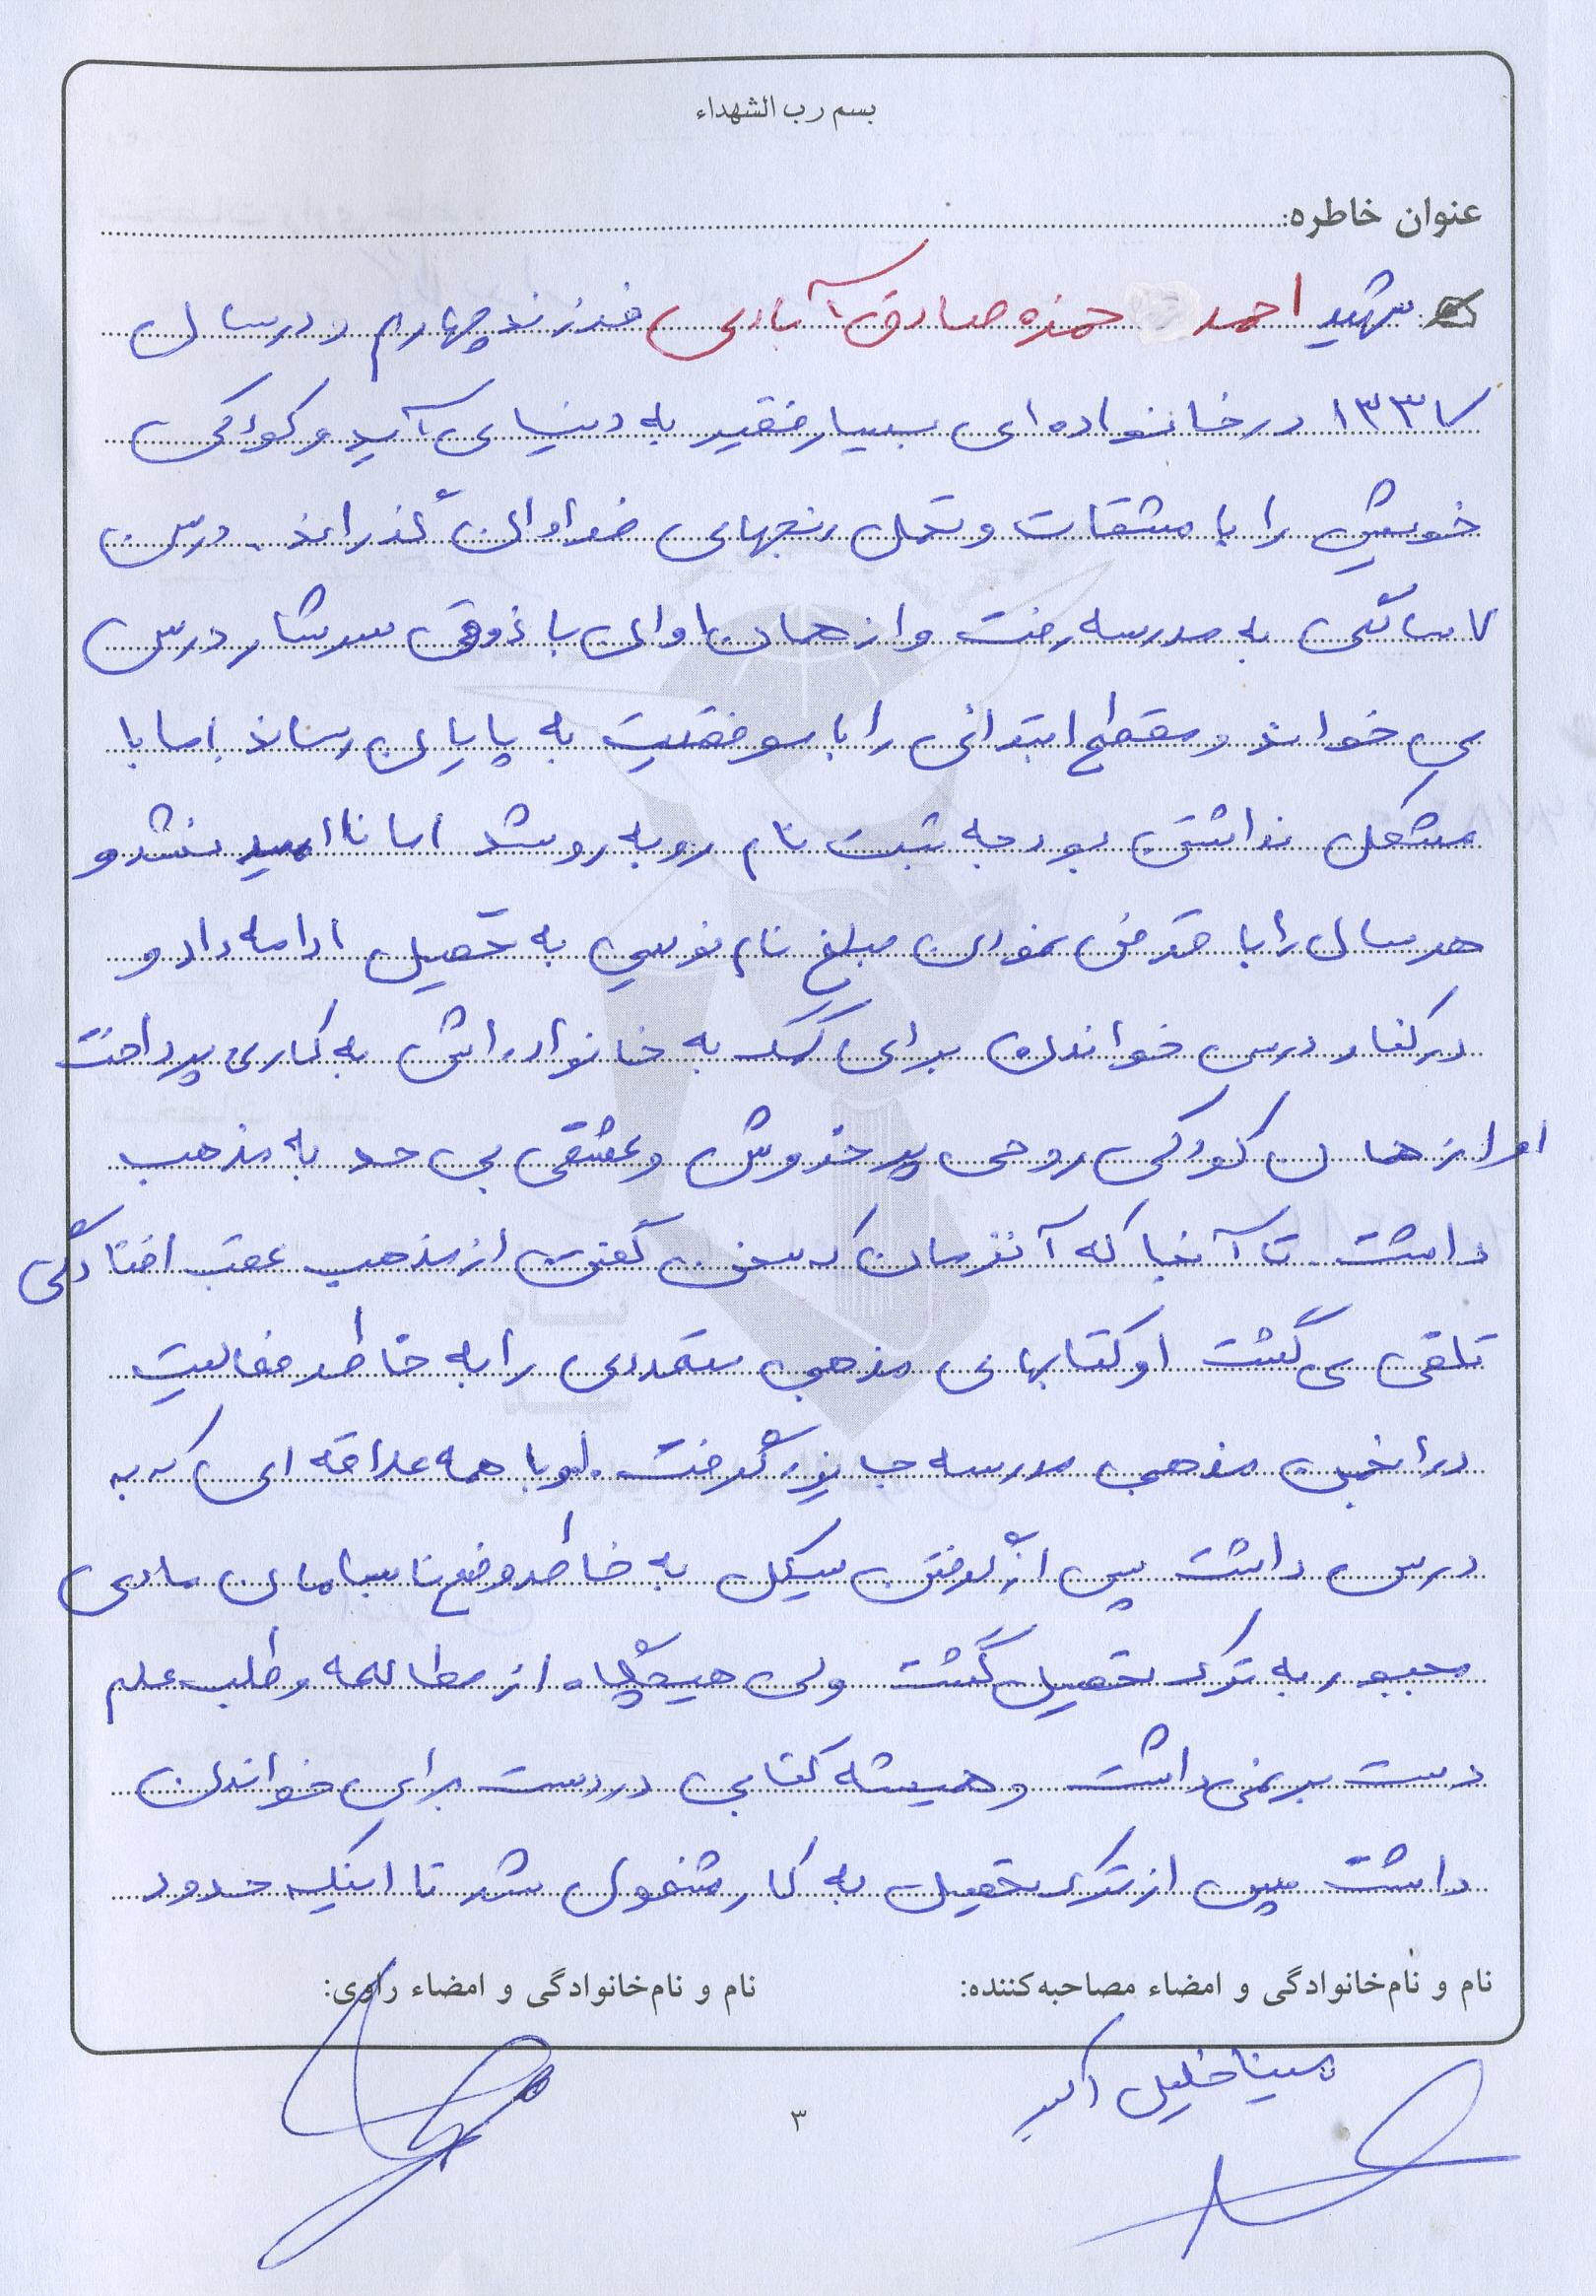 بسم رب الشهداء
عنوان خاطره:
شهید احمد حمزه صادق آبادی فرزند چهارم و در سال
۱۳۳۷ در خانواده ای بسیار فقیر به دنیا می آید و کودکی
خویش را با مشقات و تحمل رنجهای فراوان گذراند. در سن
۷ سالگی به مدرسه رفت و از همان اوان با ذوقی سرشار درس
می خواند و مقطع ابتدائی را با موفقیت به پایان رساند اما با
مشکل نداشتن بودجه ثبت نام روبه رو شد اما نا امید نشد و
هر سال را با قرض نمودن مبلغ نام نویسی به تحصیل ادامه داد و
در کنار درس خواندن برای کمک به خانواده اش به کار می پرداخت
او از همان کودکی روحی پر خروش و عشقی بی حد به مذهب
داشت. تا آنجا که آنزمان که سخن گفتن از مذهب عقب افتادگی
تلقی می گشت او کتابهای مذهبی متعددی را به خاطر فعالیت
در انجمن مذهبی مدرسه جایزه گرفت. او با همه علاقه ای که به
درس داشت پس از گرفتن سیکل به خاطر وضع نابسامان مادی
مجبور به ترک تحصیل گشت ولی هیچگاه از مطالعه و طلب علم
دست بر نمی داشت و همیشه کتابی در دست برای خواندن
داشت سپس از ترک تحصیل به کار مشغول شد تا اینکه حدود
نام و نام‌خانوادگی و امضاء مصاحبه‌کننده: نام و نام‌خانوادگی و امضاء راوی:
مینا خلیل اکبر
۳